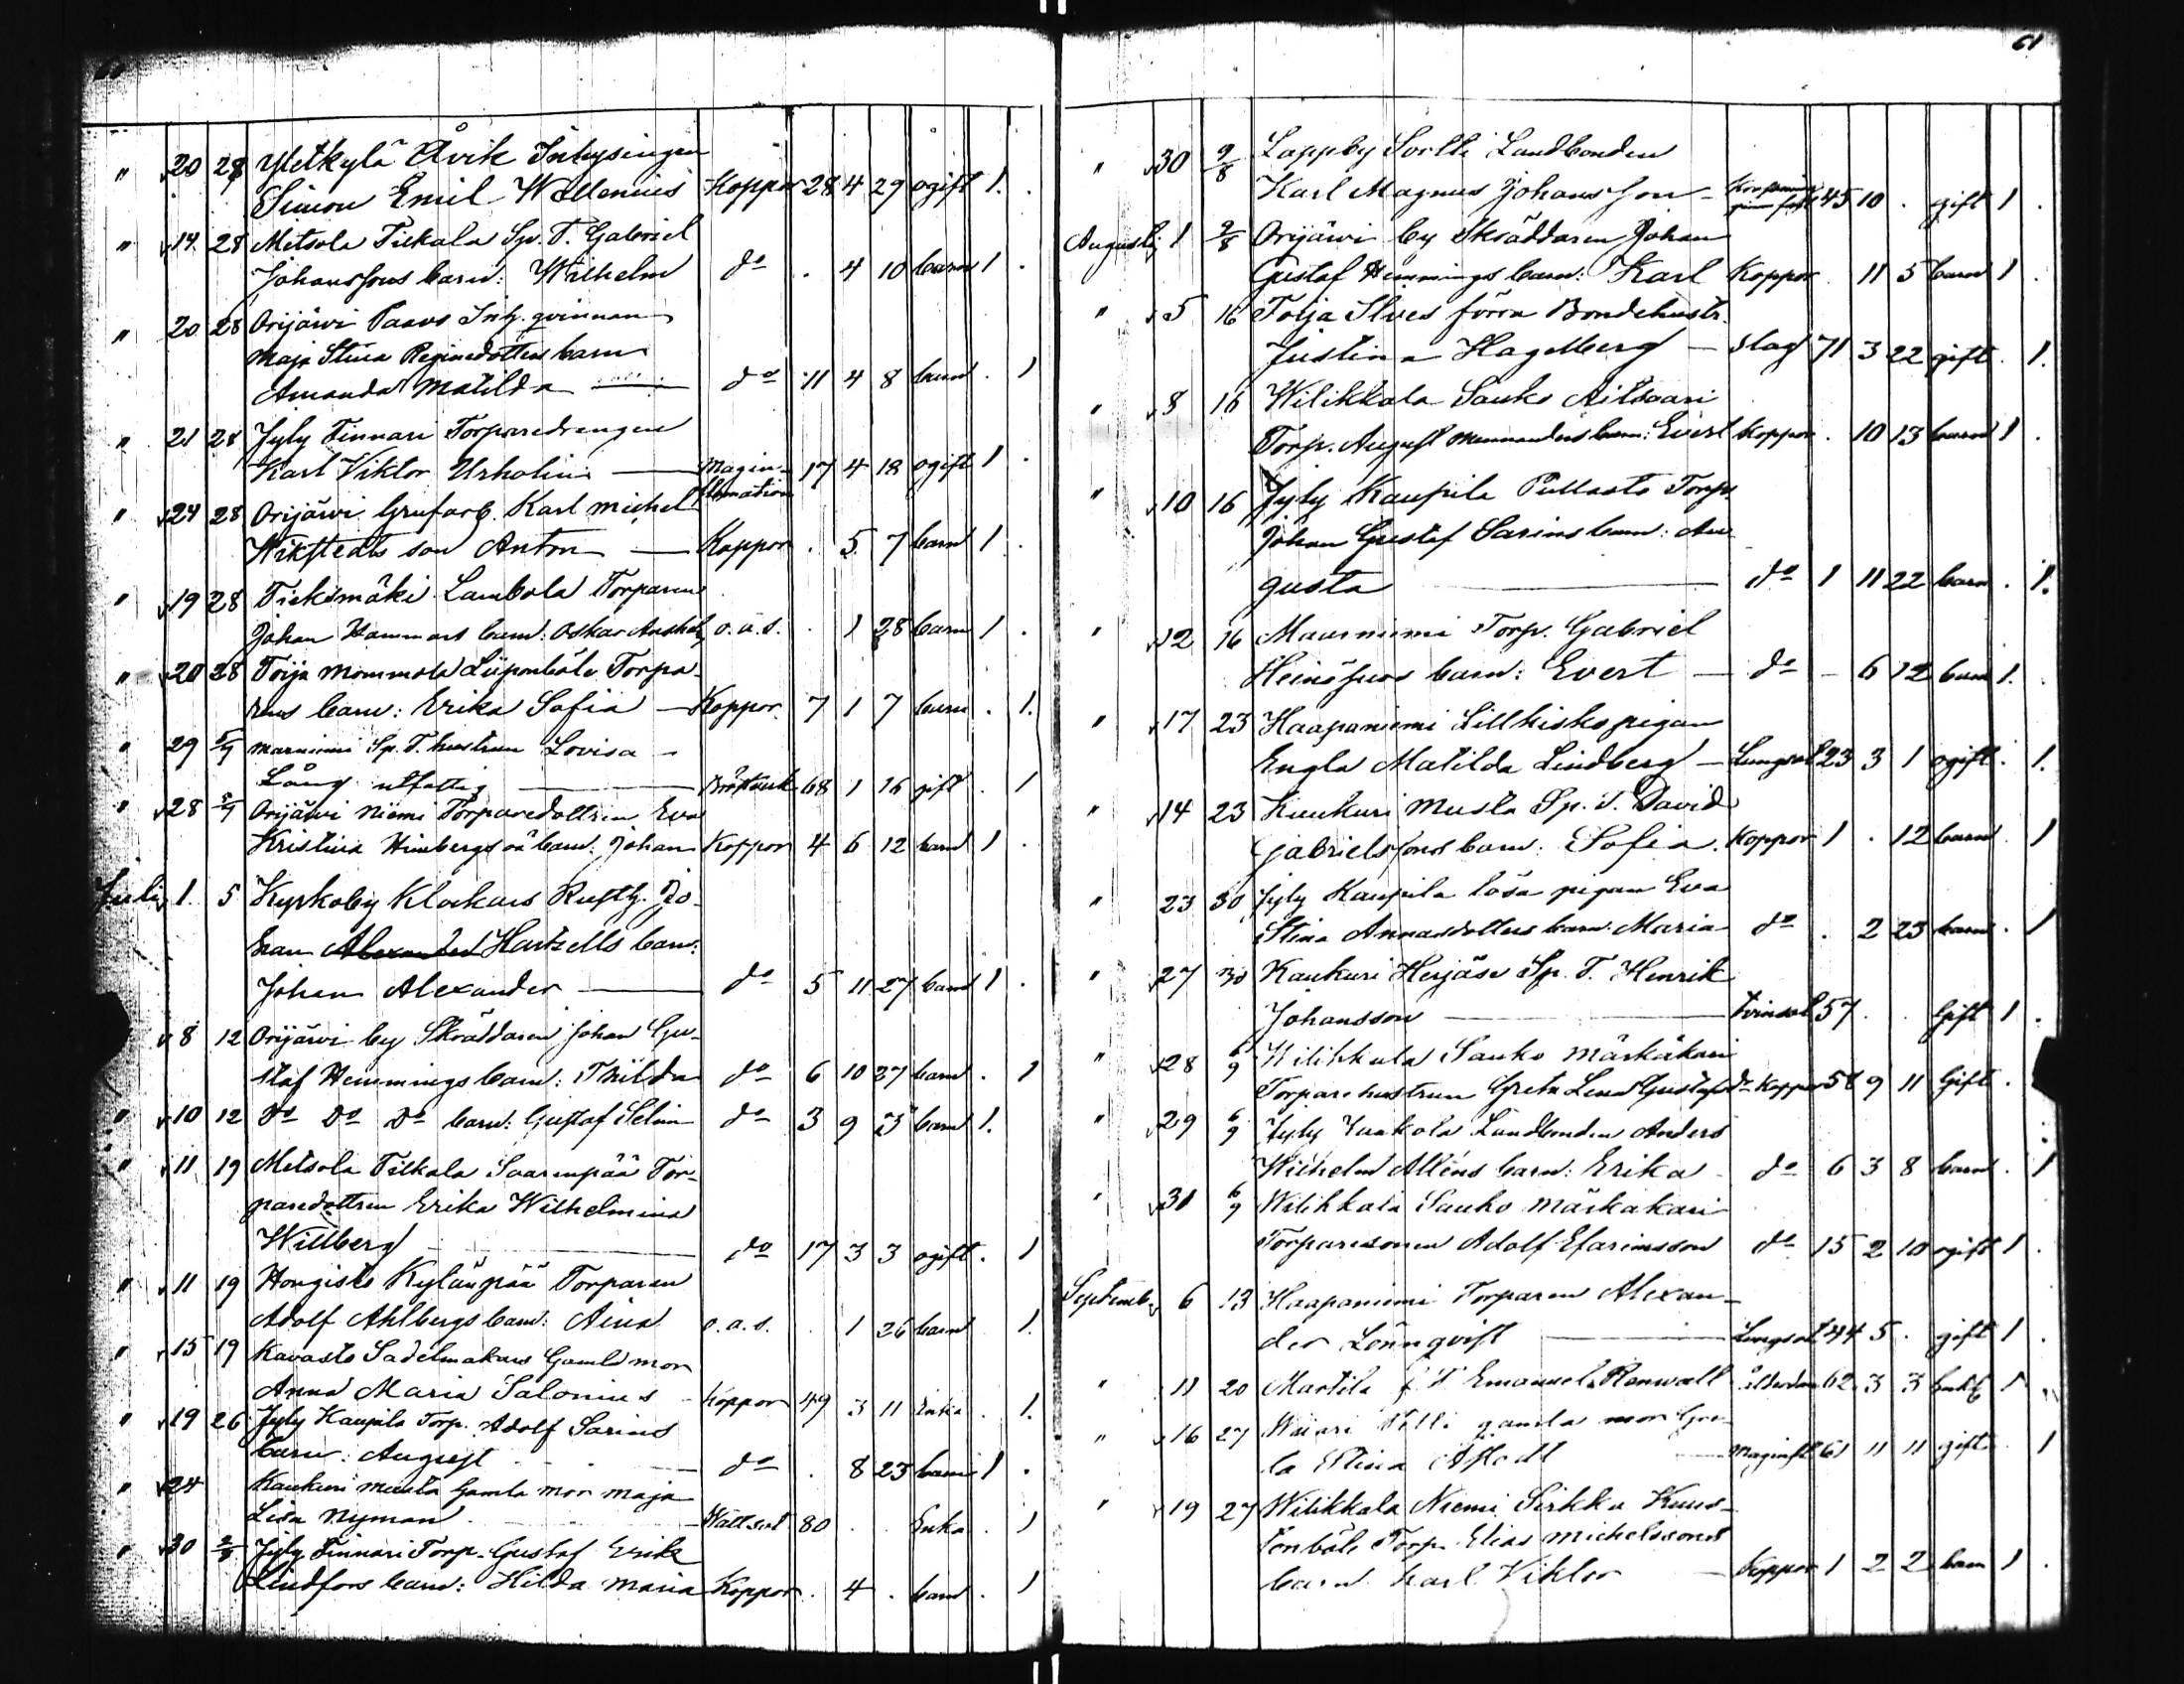 61
" 20 28 Yletkylä Åvik Inhysingen
Simon Emil Wallenius Koppor 28 4 29 ogift 1.
" 14 28 Metsola Tiekala Sp. T. Gabriel
Johanssons barn: Wilhelm do . 4 10 barn 1 .
" 20 28 Orijärvi Paavo Inh. qvinnan
Maja Stina Reginedotters barn
Amanda Matilda do 11 4 8 barn . 1
" 21 28 Jyly Finnari Torparedrengen
Karl Viktor Urholin Magin- 17 4 18 ogift 1 .
flamation
" 24 28 Orijärvi Grufarb. Karl Michel
Wikstedts son Anton Koppor . 5 7 barn 1 .
" 19 28 Tieksmäki Lambola Torparen
Johan Hammars barn: Oskar o. a. s. . 1 28 barn 1 .
" 20 28 Toija Mommola Torpa-
rens barn: Erika Sofia Koppor. 7 1 7 barn . 1.
" 29 5/7 Marniemi Sp. T. hustrun Lovisa
Lång utfattig 68 1 16 gift . 1
" 28 5/7 Orijärvi Niemi Torparedottren Eva
Kristina Himbergs oä barn: Johan Koppor 4 6 12 barn 1 .
Juli 1. 5 Kyrkoby Klockars Rusth. Jo-
han Alexander Hartzells barn:
Johan Alexander do 5 11 27 barn 1 .
8 12 Orijärvi by Skräddaren Johan Gu-
staf Hemmings barn: Thilda do 6 10 27 barn . 1
" 10 12 Do Do Do barn: Gustaf Selim do 3 9 23 barn 1.
" 11 19 Metsola Tiekala Saarenpää Tor-
paredottren Erika Wilhelmina
Willberg do 17 3 3 ogift . 1
" 11 19 Hongisto Kylänpää Torparen
Adolf Ahlbergs barn: Aina o. a. s. . 1 26 barn 1.
" 15 19 Kavasto Sadelmakars Gamla mor
Anna Maria Salonius Koppor 49 3 11 Enka . 1.
" 19 26 Jyly Kaupila Torp. Adolf Sarins
barn: August do . 8 23 barn 1 .
" 24 Kaukuri Musta Gamla mor Maja
Lisa Nyman Wattsot 80 . . Enka . 1
" 30 2/8 Jyly Finnari Torp. Gustaf Erik
Lindfors barn: Hilda Maria Koppor . 4 . barn . 1
" 30 9/8 Lappby Sorlli Landbonden
Karl Magnus Johansson 45 10 . gift 1 .
Augusti 1 2/8 Orijärvi by Skräddaren Johan
Gustaf Hemmings barn: Karl Koppor . 11 5 barn 1 .
" 5 16 Toija Ilves förra Bondehustr.
Justina Hagelberg Slag 71 3 22 gift . 1.
" 8 16 Wilikkala Sauko
Torp. August barn: Evert Koppor . 10 13 barn 1 .
" 10 16 Jyly Kaupila Pullasto Torp.
Johan Gustaf Sarins barn: Au-
gusta do 1 11 22 barn . 1.
" 12 16 Maarniemi Torp. Gabriel
barn: Evert do - 6 12 barn 1. .
" 17 23 Haapaniemi Lillkisko pigan
Engla Matilda Lindberg Lungsot 23 3 1 ogift . 1.
" 14 23 Kaukuri Musta Sp. T. David
Gabrielssons barn: Sofia. Koppor 1 . 12 barn . 1
" 23 30 Jyly Kaupila lösa pigan Eva
Stina Annasdotters barn: Maria do . 2 23 barn . 1
" 27 30 Kaukuri Herjäse Sp. T. Henrik
Johansson Tvinsot 57 . . Gift 1 .
" 28 6/9 Wilikkala Sauko Märkäkari
Torparehustrun Greta Lena Gustafsdr Koppor 58 9 11 Gift .
" 29 6/9 Jyly Jaakola Landbonden Anders
Wilhelm Alléns barn: Erika do 6 3 8 barn . 1
" 31 6/9 Wilikkala Sauko Märkäkari
Torparesonen Adolf Efarimsson do 15 2 10 ogift 1 .
Septemb. 6 13 Haapaniemi Torparen Alexan-
der Lönnqvist Lungsot 44 5 . gift 1 .
" 11 20 Martila f. T. Emanuel Renwall ålderdom 62 3 3 Enkl. 1
" 16 27 gamla mor Gre-
ta Stina Maginfl. 61 11 11 gift . 1
" 19 27 Wilikkala Niemi Sirkka Kuus-
tonböle Torp. Elias Michelssons
barn Karl Viktor Koppor 1 2 2 barn 1 .